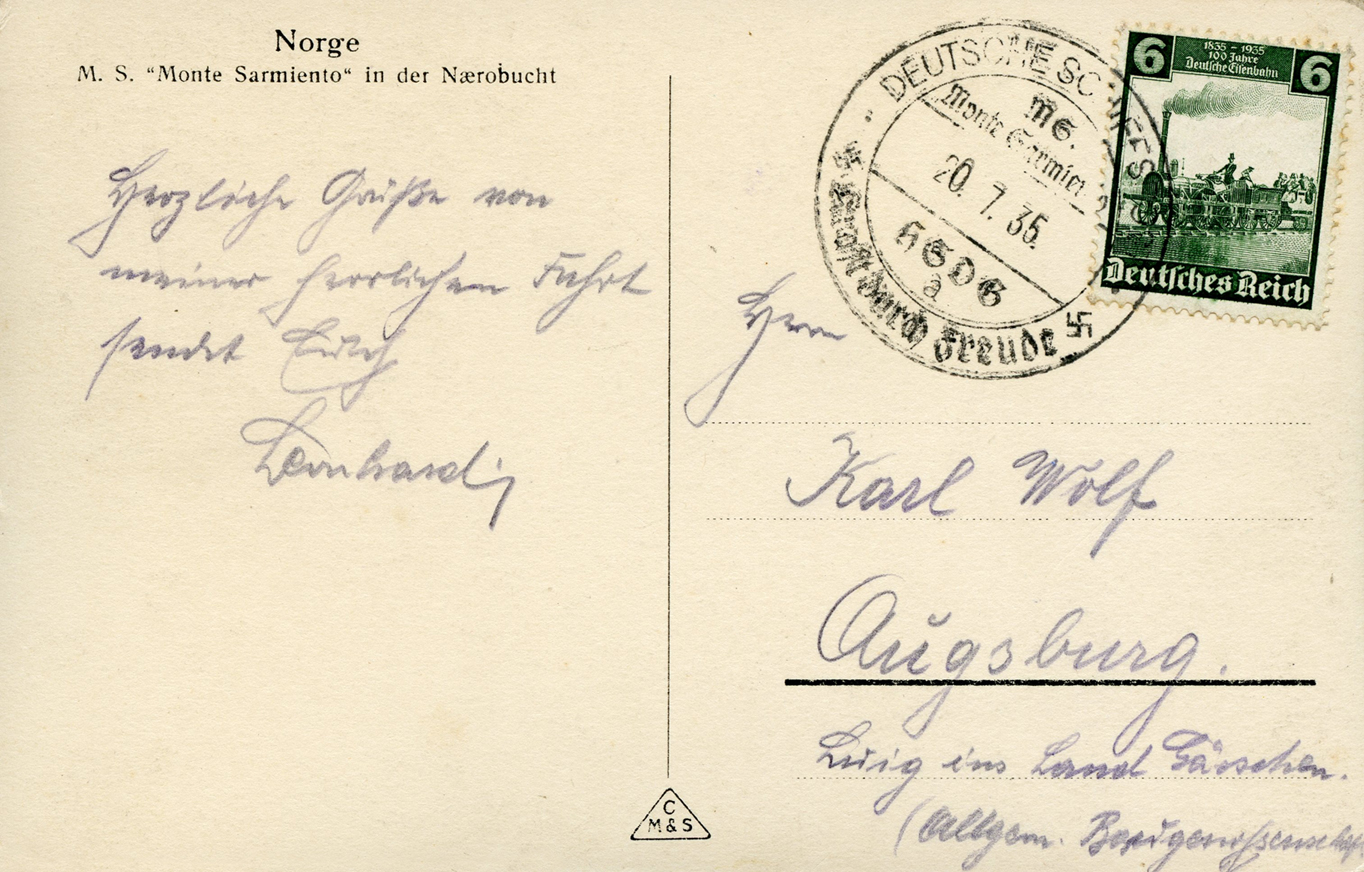 Norge
M. S. "Monte Sarmiento" in der Nærobucht
Herzliche Grüße von
meiner herrlichen Fahrt
sendet Euch
Bernhard
DEUTSCHE SCHIFFSPOST
MS.
Monte Sarmiento
20.7.35.
HSDG
a
Kraft durch Freude
6 1835 - 1935 6
100 Jahre
Deutsche Eisenbahn
Deutsches Reich
Herrn
Karl Wolf
Augsburg.
Luig ins Land Gässchen.
(Allgem. Baugenossenschaft
C
M & S